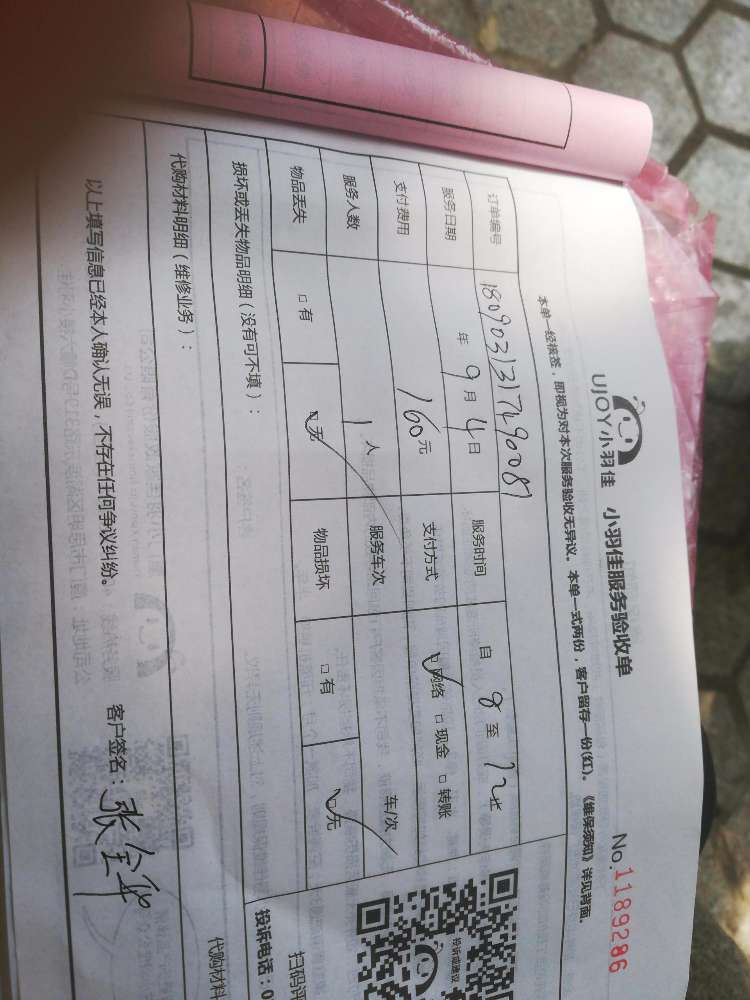 UJOY小羽佳 小羽佳服务验收单 No.1189286
本单一经核签，即视为对本次服务验收无异议。本单一式两份，客户留存一份(红)。《维保须知》详见背面。
订单编号 180903131749008 服务时间 自 8 至 12
服务日期 年 9 月 4 日
支付费用 160 元 支付方式 网络 □ 现金 □ 转账
服务人数 1 人 服务车次 车/次
物品丢失 □ 有 □ 无 物品损坏 □ 有 □ 无
损坏或丢失物品明细（没有可不填）：
代购材料明细（维修业务）：
以上填写信息已经本人确认无误，不存在任何争议纠纷。 客户签名：
投诉或建议
扫码评
投诉电话：0
代购材料